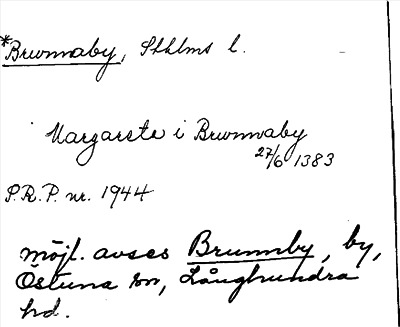 *Brwnnaby, Sthlms l.
Margarete i Brwnnaby
27/6 1383
P.R.P. nr. 1944
möjl. avses Brunnby, by,
Östuna sn, Långhundra
hd.